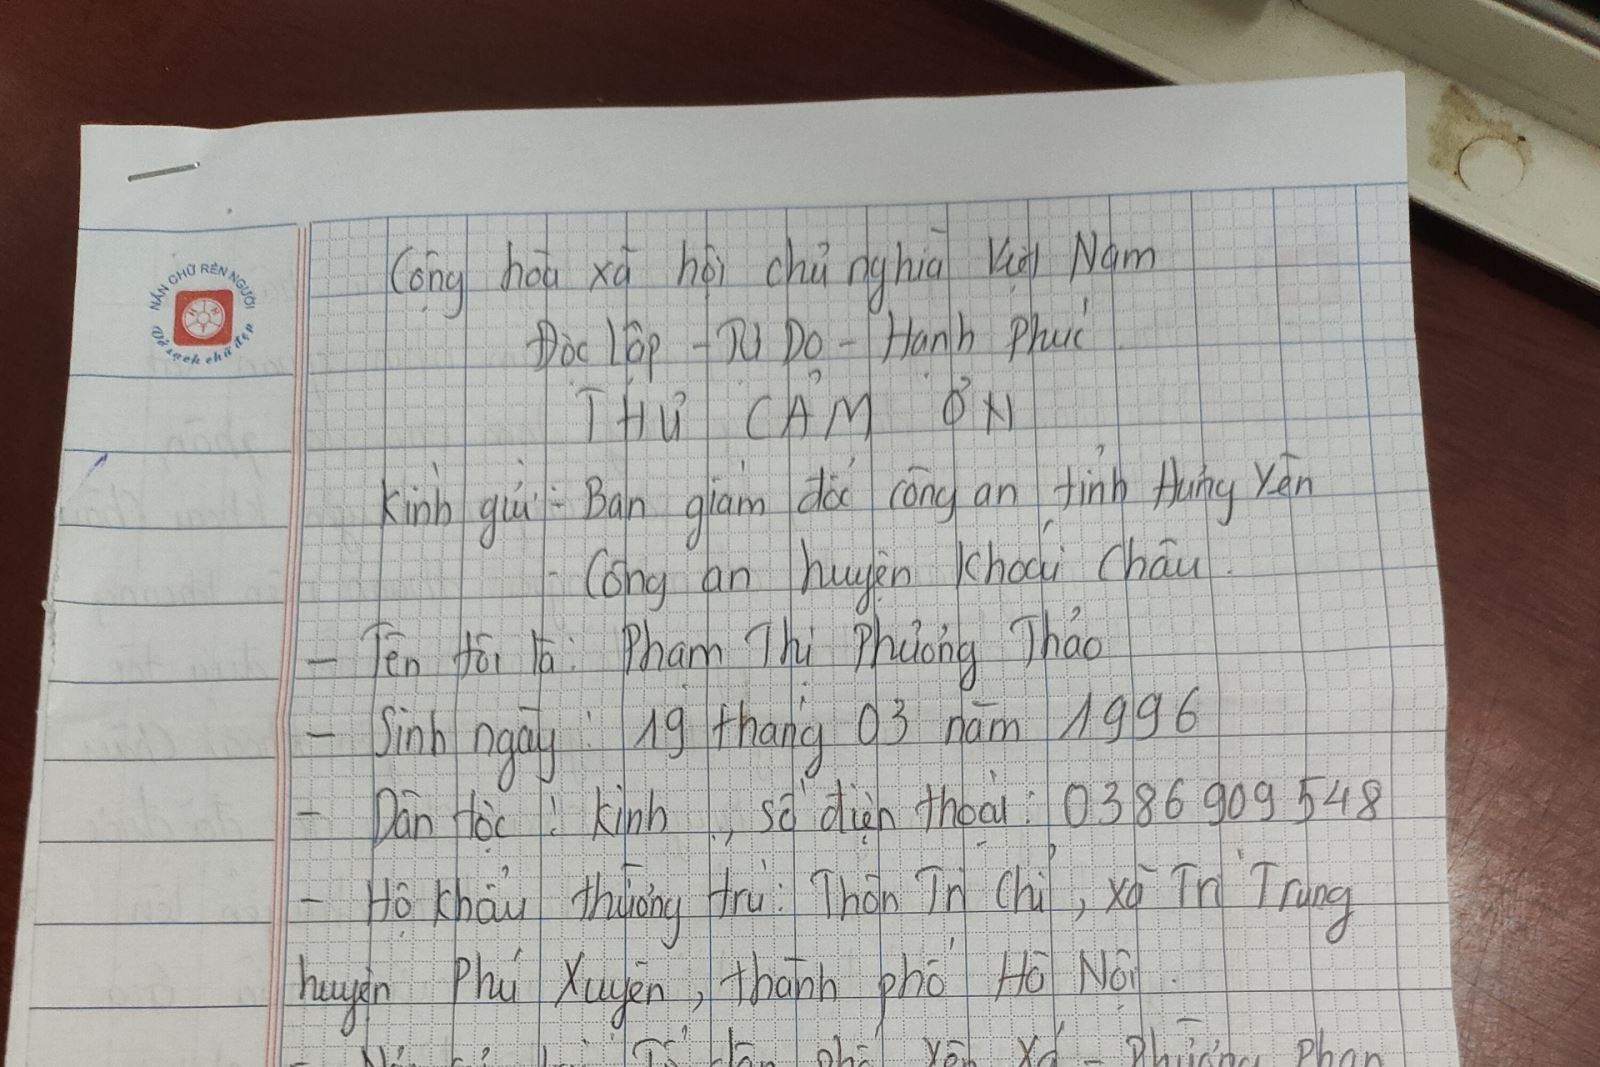 NẮN CHỮ RÈN NGƯỜI
Vở sạch chữ đẹp
Cộng hòa xã hội chủ nghĩa Việt Nam
Độc lập - Tự Do - Hạnh Phúc
THƯ CẢM ƠN
Kính gửi: Ban giám đốc công an tỉnh Hưng Yên
- Công an huyện Khoái Châu.
- Tên tôi là: Phạm Thị Phương Thảo
- Sinh ngày: 19 tháng 03 năm 1996
- Dân tộc: Kinh, số điện thoại: 0386909548
- Hộ khẩu thường trú: Thôn Tri Chỉ, xã Tri Trung
huyện Phú Xuyên, thành phố Hà Nội.
- Tổ dân phố Yên Xá - Phường Phan